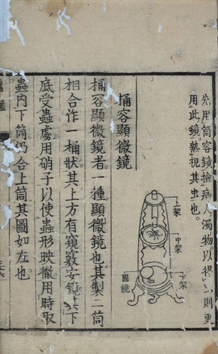 先用筒容鏡檢病人濁物以得則更
用此鏡熟視其虫也
桶容顯微鏡
上架
中架
下架
桶容顯微鏡者一種顯微鏡也其製二筒
相合作一桶狀其上方有窺竅安鏡其下
底受蟲處用硝子以使蟲形映徹用時取
蟲內下筒仍合上筒其圖如左也